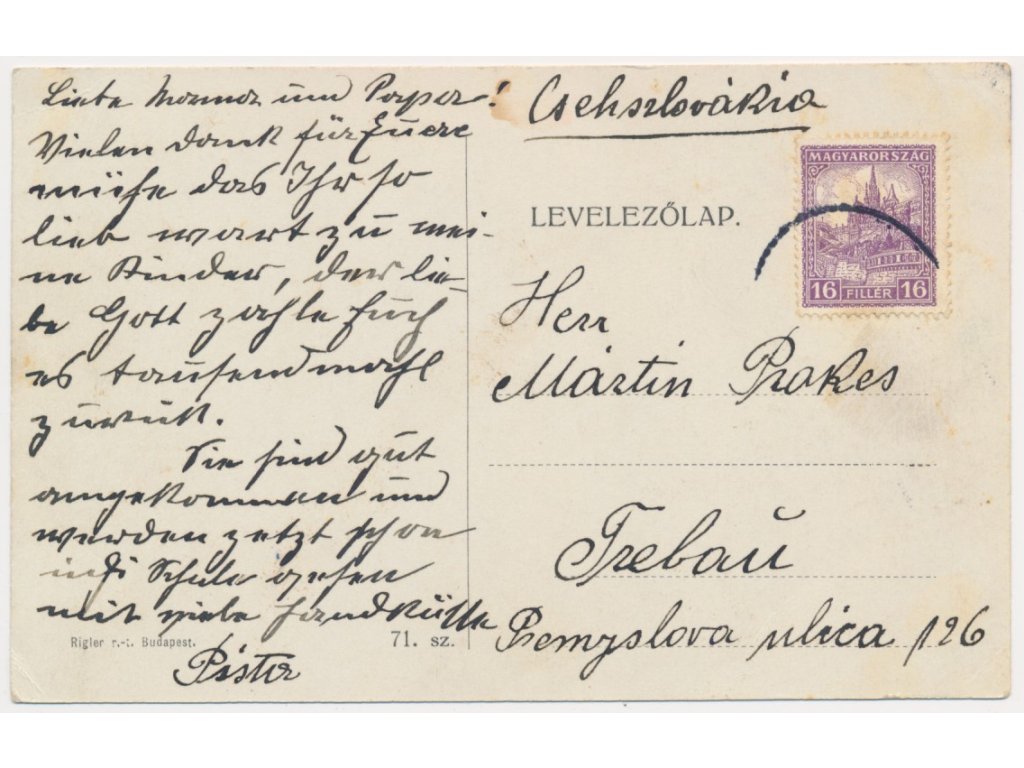 Liebe Mamma und Papa!
Vielen dank für Euere
mühe das Ihr so
lieb wart zu mei-
ne Kinder, der lie-
be Gott zahle Euch
es tausendmahl
zurük.
Sie sind gut
angekommen und
werden zetzt schon
in die Schule gehen
mit viele Handküsse
Pista
Rigler r.-t. Budapest.
71. sz.
Csehszlovákia
MAGYARORSZÁG
16 FILLÉR 16
LEVELEZŐLAP.
Herr
Mártin Prokes
Trebaŭ
Premyslova ulica 126